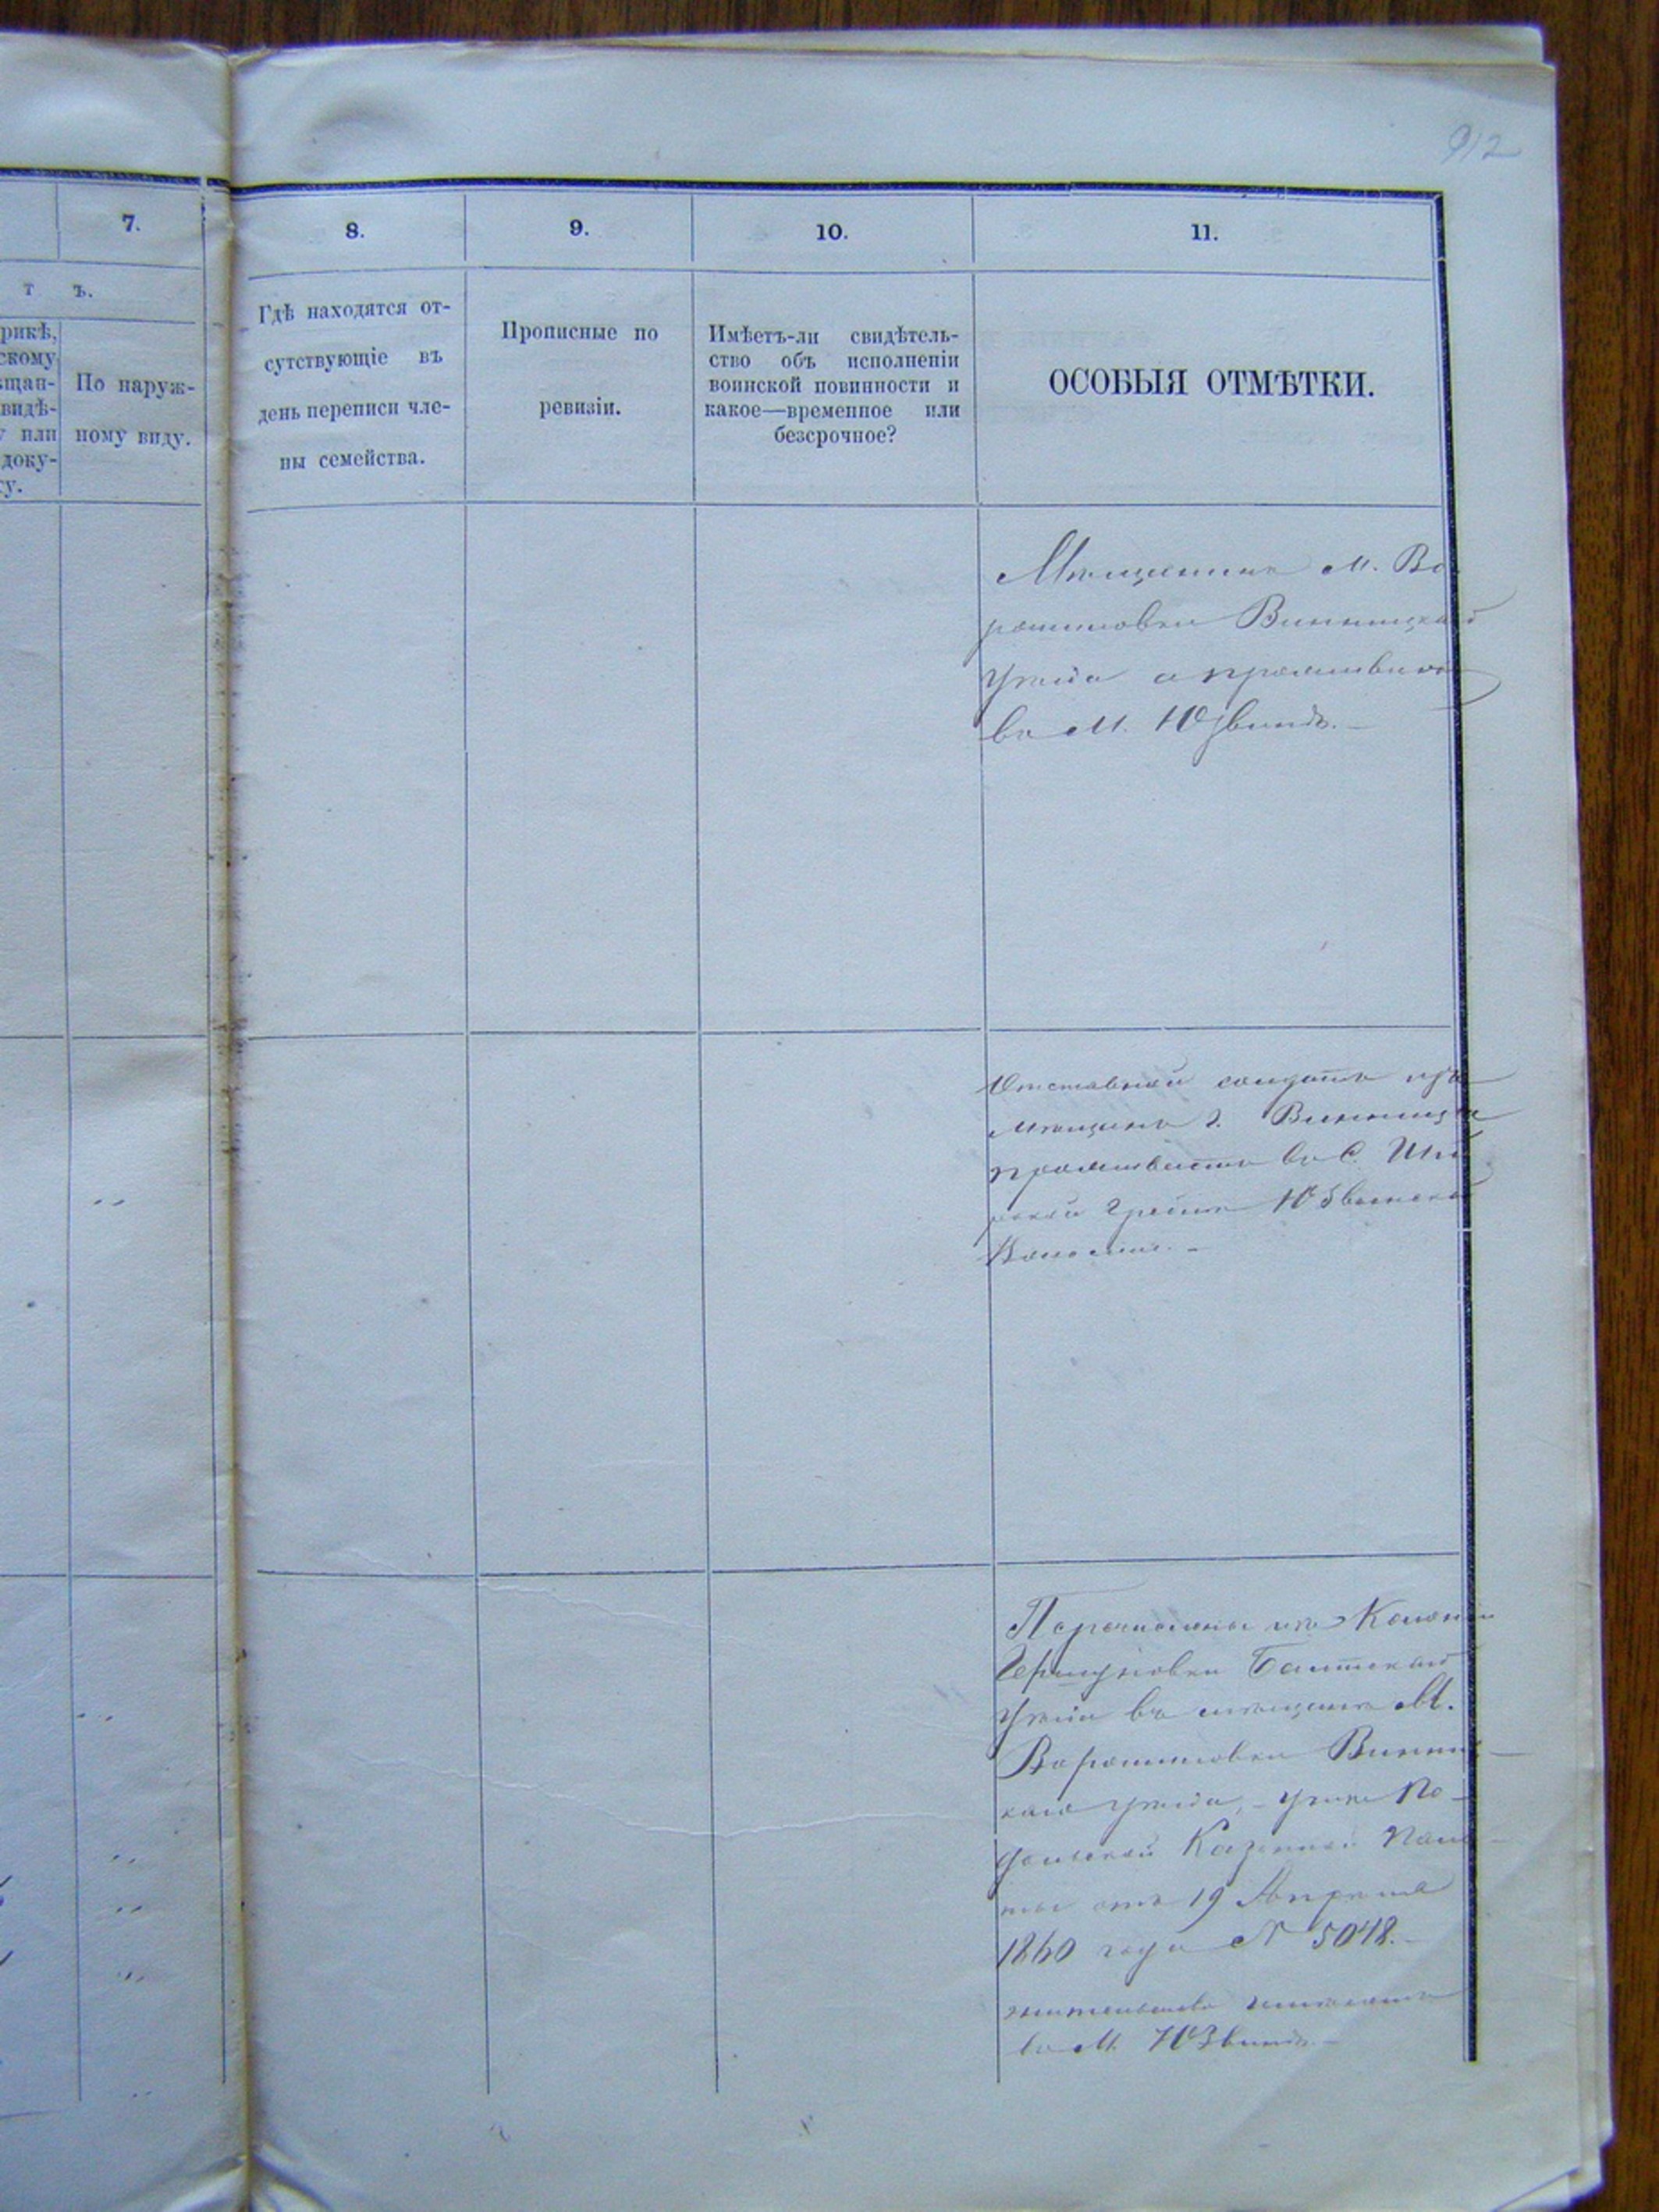 912
7.
т ъ.
рикѣ,
скому
щан-
видѣ-
у или
доку-
у.
По наруж-
ному виду.
8.
Гдѣ находятся от-
сутствующіе въ
день переписи чле-
ны семейства.
9.
Прописные по
ревизіи.
10.
Имѣетъ-ли свидѣтель-
ство объ исполненіи
воинской повинности и
какое—временное или
безсрочное?
11.
ОСОБЫЯ ОТМѢТКИ.
м. Во
рошиловки Винницкаго
уѣзда а проживаютъ
въ М. Юзвинѣ.—
Отставной солдатъ изъ
мѣщанъ г. Винницы
проживаетъ въ С.
Юзвинской
Волости.—
Перечислены изъ Колоніи
Балтскаго
уѣзда въ мѣщане М.
Ворошиловки Винниц
каго уѣзда, Указ По
дольской Казенной Пала
ты отъ 19 Апрѣля
1860 года № 5048.—
жительство
въ М. Юзвинѣ.—